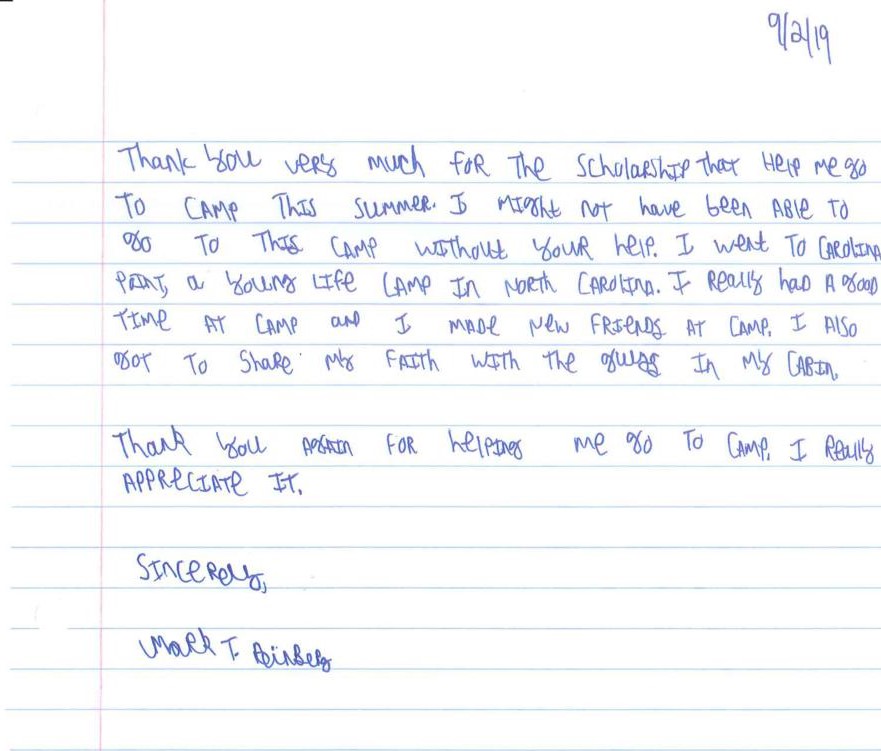 9/2/19
Thank you very much for the scholarship that help me go
to camp this summer. I might not have been able to
go to this camp without your help. I went to Carolina
Point, a Young Life camp in North Carolina. I really had a good
time at camp and I made new friends at camp. I also
got to share my faith with the guys in my cabin.
Thank you again for helping me go to camp. I really
appreciate it.
Sincerely,
Mark T.